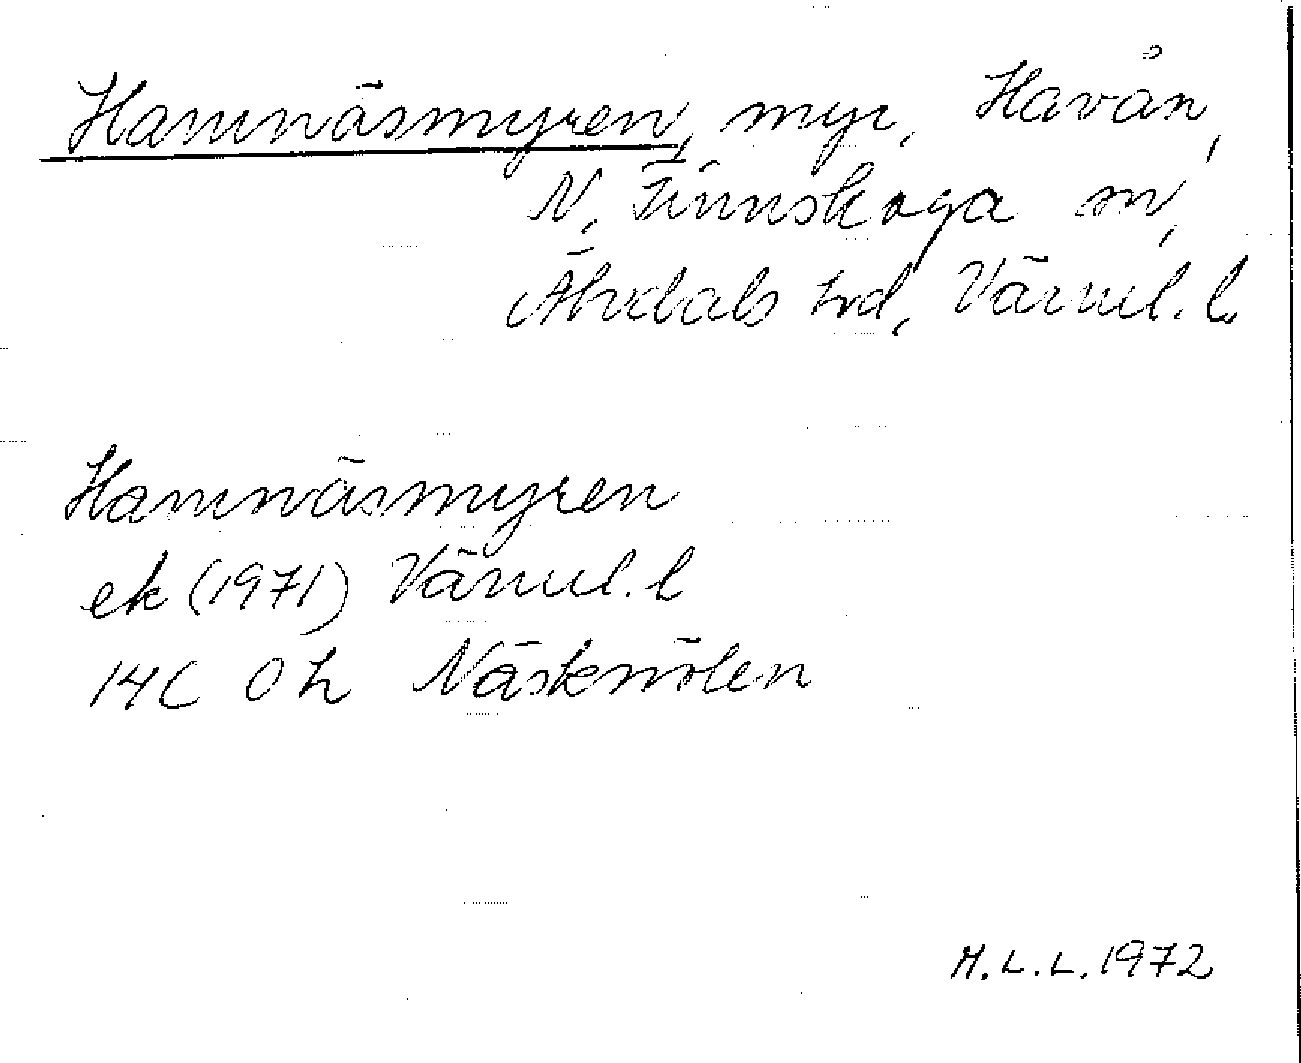 Hamnäsmyren, myr, Havån,
N. Finnskoga sn,
Älvdals hd, Värml. l.
Hamnäsmyren
ek (1971) Värml. l
14C 0h Näsknölen
M.L.L. 1972